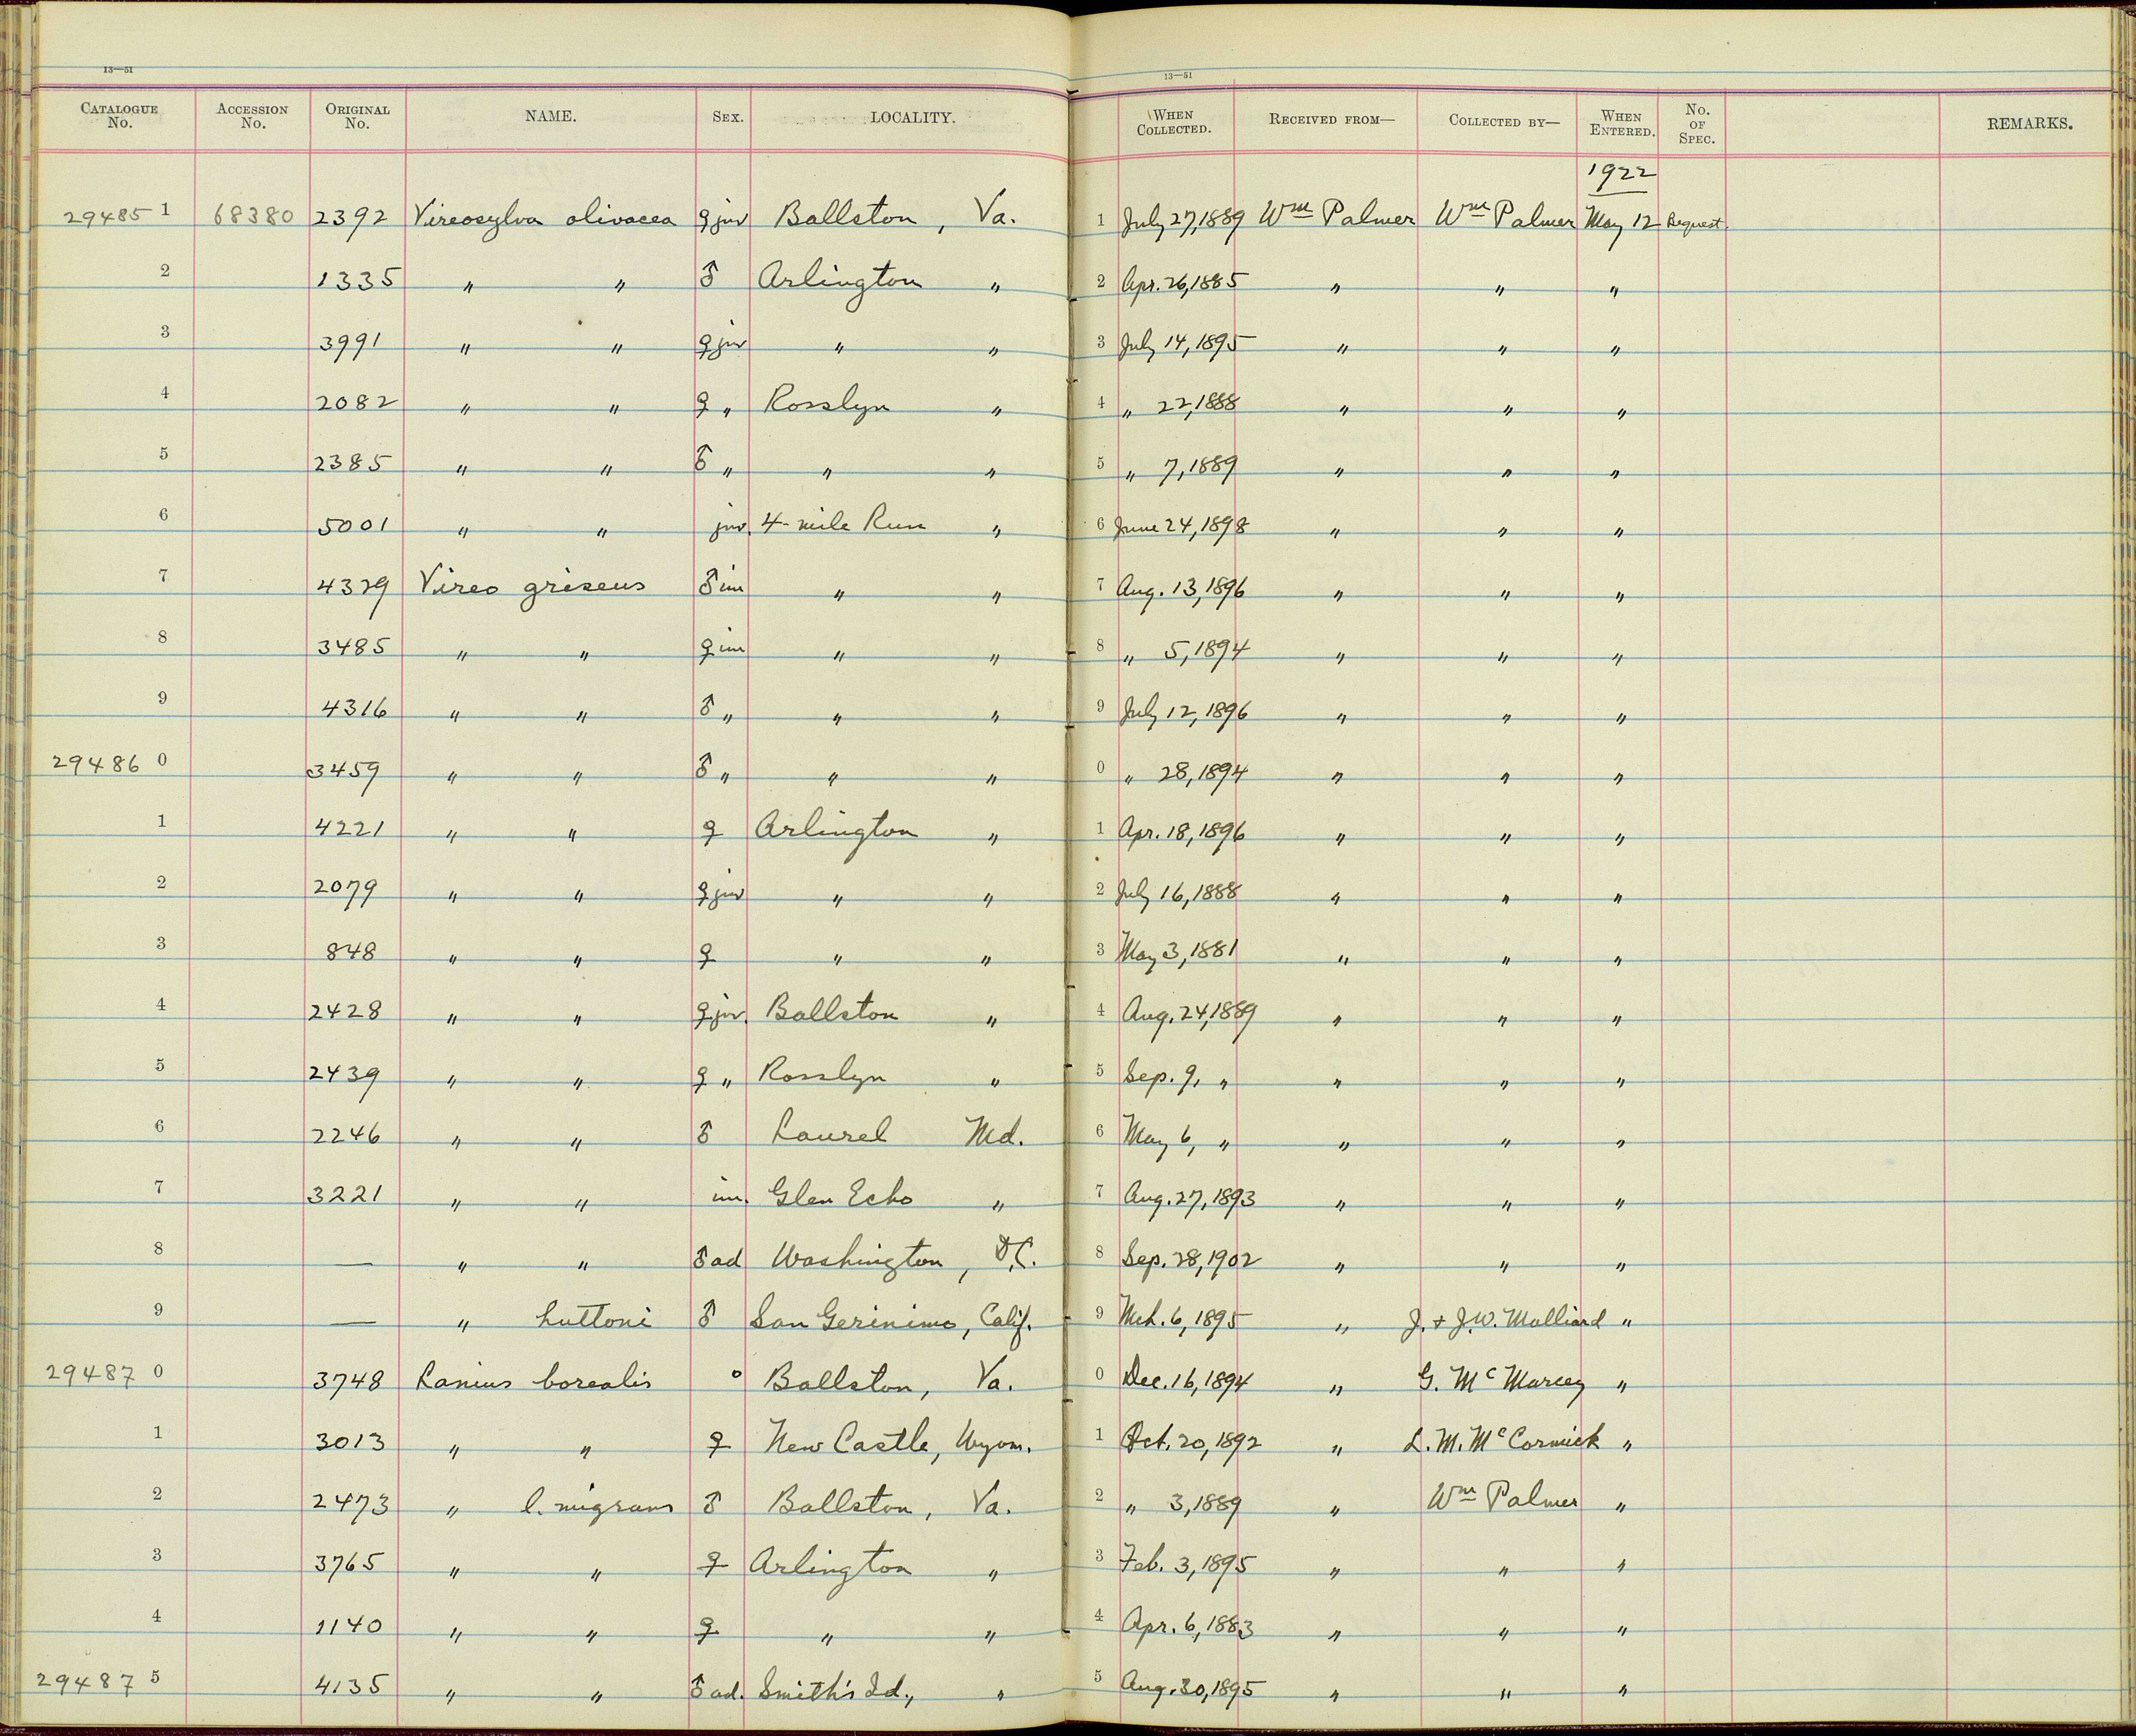 13—51 13—51
CATALOGUE No. ACCESSION No. ORIGINAL No. NAME. SEX. LOCALITY. WHEN COLLECTED. RECEIVED FROM— COLLECTED BY— WHEN ENTERED. No. OF SPEC. REMARKS.
1922
29485 1 68380 2392 Vireosylva olivacea ♀ juv Ballston, Va. 1 July 27, 1889 Wm Palmer Wm Palmer May 12 Bequest.
2 1335 " " ♂ Arlington " 2 Apr. 26, 1885 " " "
3 3991 " " ♀ juv " " 3 July 14, 1895 " " "
4 2082 " " ♀ " Rosslyn " 4 " 22, 1888 " " "
5 2385 " " ♂ " " " 5 " 7, 1889 " " "
6 5001 " " juv. 4-mile Run " 6 June 24, 1898 " " "
7 4339 Vireo griseus ♂ im " " 7 Aug. 13, 1896 " " "
8 3485 " " ♀ im " " 8 " 5, 1894 " " "
9 4316 " " ♂ " " " 9 July 12, 1896 " " "
29486 0 3459 " " ♂ " " " 0 " 28, 1894 " " "
1 4221 " " ♀ Arlington " 1 Apr. 18, 1896 " " "
2 2079 " " ♀ juv " " 2 July 16, 1888 " " "
3 848 " " ♀ " " 3 May 3, 1881 " " "
4 2428 " " ♀ juv. Ballston " 4 Aug. 24, 1889 " " "
5 2439 " " ♀ " Rosslyn " 5 Sep. 9, " " " "
6 2246 " " ♂ Laurel Md. 6 May 6, " " " "
7 3221 " " im. Glen Echo " 7 Aug. 27, 1893 " " "
8 — " " ♂ ad Washington, D.C. 8 Sep. 28, 1902 " " "
9 — " huttoni ♂ San Gerinimo, Calif. 9 Mch. 6, 1895 " J. + J.W. Malliard "
29487 0 3748 Lanius borealis o Ballston, Va. 0 Dec. 16, 1894 " G. McMarcey "
1 3013 " " ♀ New Castle, Wyom. 1 Oct. 20, 1892 " L. M. McCormick "
2 2473 " l. migrans ♂ Ballston, Va. 2 " 3, 1889 " Wm Palmer "
3 3765 " " ♀ Arlington " 3 Feb. 3, 1895 " " "
4 1140 " " ♀ " " 4 Apr. 6, 1883 " " "
29487 5 4135 " " ♂ ad. Smith's Id., " 5 Aug. 30, 1895 " " "